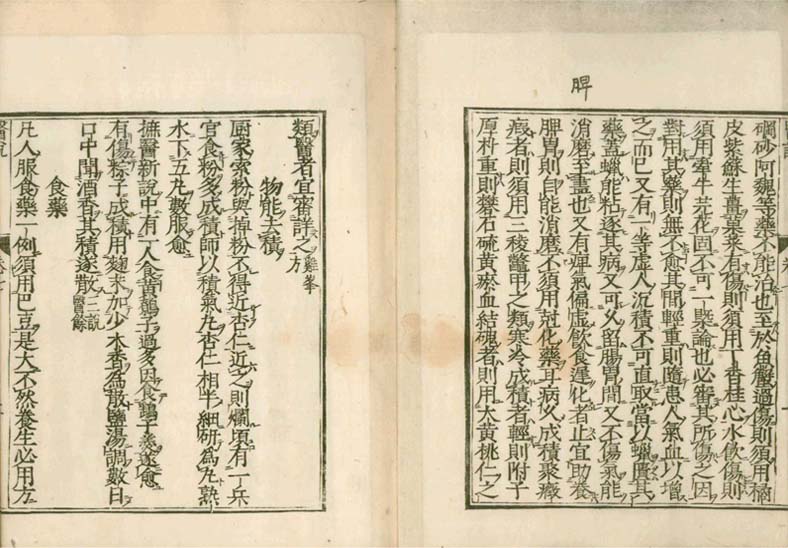 脾
硇砂阿魏等藥不能治也至於魚蟹過傷則須用橘
皮紫蘇生薑菓菜有傷則須用丁香桂心水飲傷則
須用牽牛芫花固不可一槩論也必審其所傷之因
對用其藥則無不愈其間輕重則隨患人氣血以增
之而已又有一等虛人沉積不可直取當以蠟匱其
藥蓋蠟能粘逐其病又可久留腸胃間又不傷氣能
消磨至盡也又有脾氣偏虛飲食遲化者止宜助養
脾胃則自能消磨不須用尅化藥耳病久成積聚癥
瘕者則須用三稜鼈甲之類寒冷成積者輕則附子
厚朴重則礬石硫黃瘀血結塊者則用大黃桃仁之
類醫者宜審詳之方雞峯
物能去積
厨家索粉與掉粉不得近杏仁近之則爛頃有一兵
官食粉多成積師以積氣丸杏仁相半細研爲丸熟
水下五丸數服愈
撫醫新說中有一人食黃鶵子過多因食鶵子羹遂愈
有傷粽子成積用麴末加少木香爲散鹽湯調數日
口中聞酒香其積遂散二說醫餘
食藥
凡人服食藥一例須用巴豆是大不然養生必用方
醫說